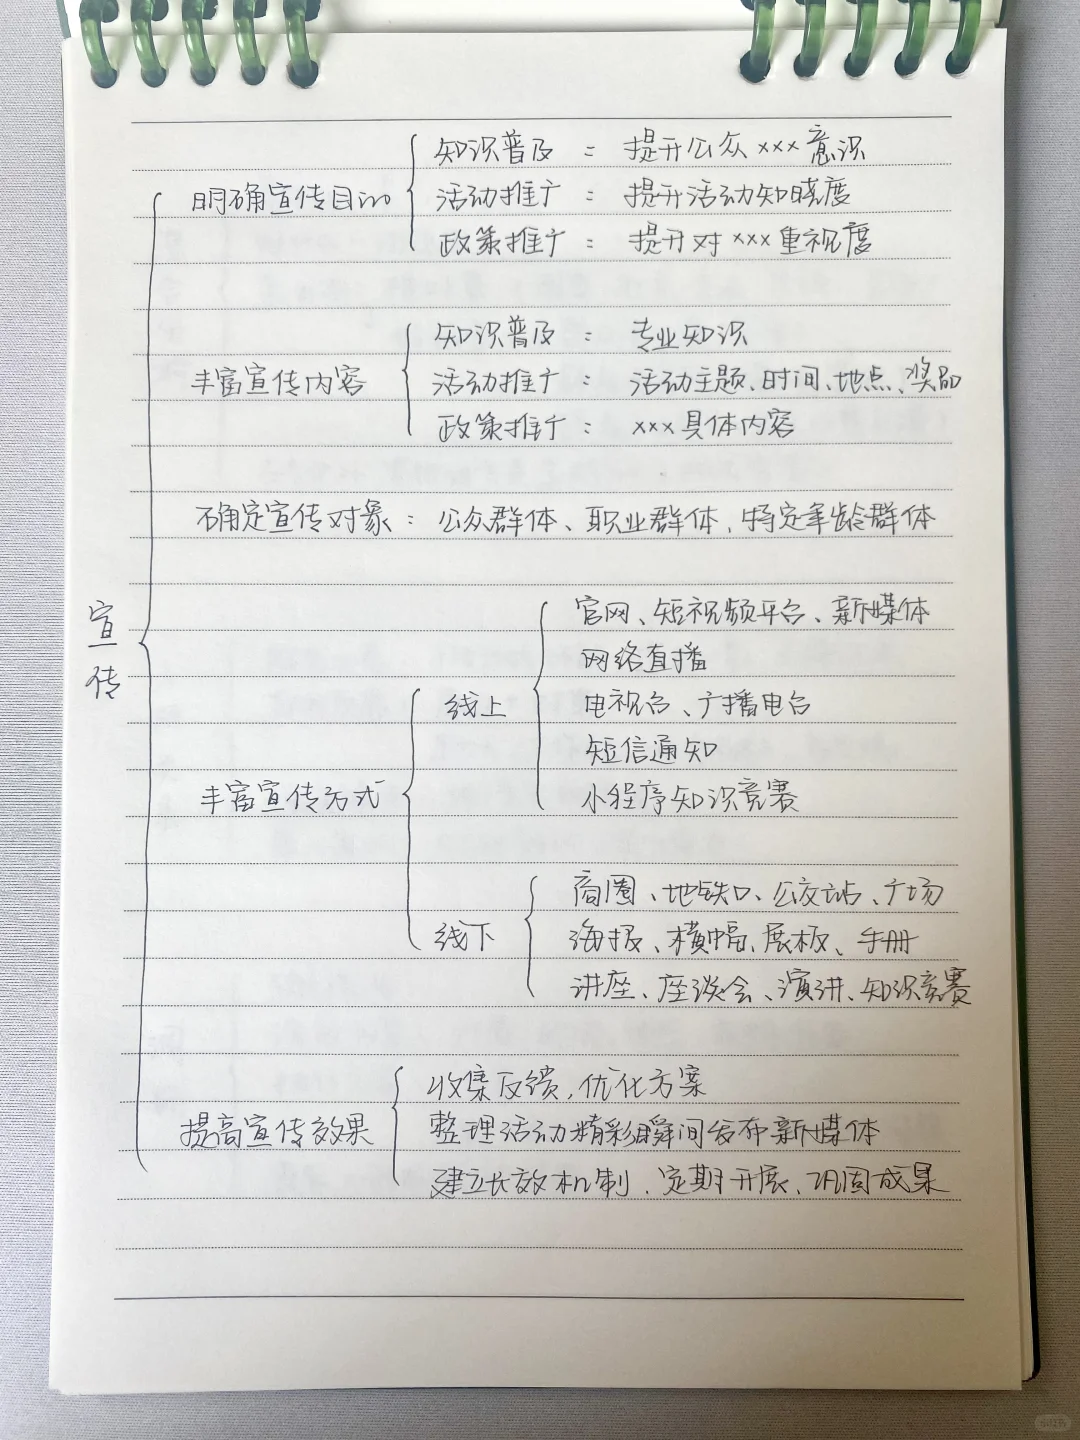 宣传
明确宣传目的
知识普及：提升公众xxx意识
活动推广：提升活动知晓度
政策推广：提升对xxx重视度
丰富宣传内容
知识普及：专业知识
活动推广：活动主题、时间、地点、奖品
政策推广：xxx具体内容
确定宣传对象：公众群体、职业群体、特定年龄群体
丰富宣传方式
线上
官网、短视频平台、新媒体
网络直播
电视台、广播电台
短信通知
小程序知识竞赛
线下
商圈、地铁口、公交站、广场
海报、横幅、展板、手册
讲座、座谈会、演讲、知识竞赛
提高宣传效果
收集反馈，优化方案
整理活动精彩瞬间发布新媒体
建立长效机制、定期开展、巩固成果
小红书